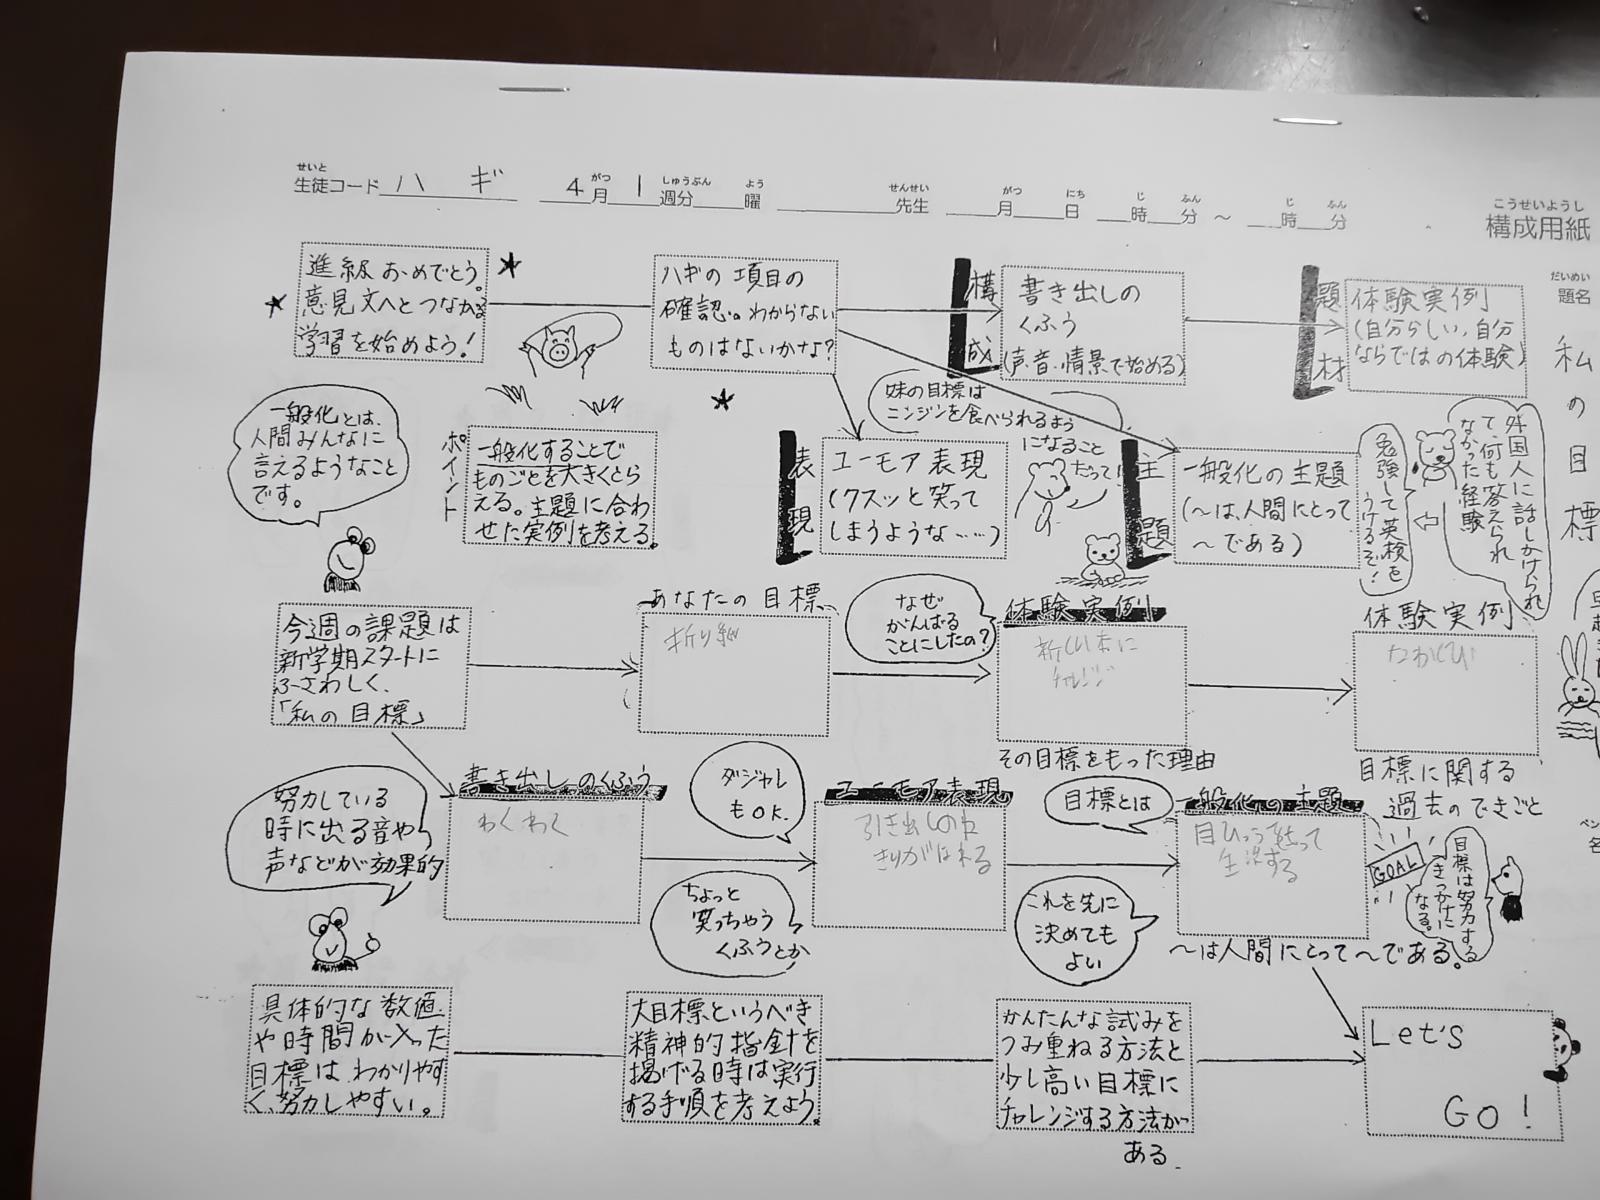 せいと がつ しゅうぶん よう せんせい がつ にち じ ふん じ ふん
生徒コード ハギ 4月 1週分 曜 先生 月 日 時 分 ～ 時 分
こうせいようし
構成用紙
だいめい
題名
私の目標
進級おめでとう。
意見文へとつながる
学習を始めよう！
ハギの項目の
確認。わからない
ものはないかな？
構成
書き出しの
くふう
(声・音・情景で始める)
題材
体験実例
(自分らしい、自分
ならではの体験)
一般化とは、
人間みんなに
言えるようなこと
です。
ポイント
一般化することで
ものごとを大きくとら
える。主題に合わ
せた実例を考える。
妹の目標は
ニンジンを食べられるよう
になること
だって！
表現
ユーモア表現
(クスッと笑って
しまうような……)
主題
一般化の主題
(〜は、人間にとって
〜である)
外国人に話しかけられ
て、何も答えられ
なかった経験
勉強して英検を
うけるぞ！
今週の課題は
新学期スタートに
ふさわしく、
「私の目標」
あなたの目標
折り紙
なぜ
がんばる
ことにしたの？
体験実例
新しい本に
チャレンジ
その目標をもった理由
体験実例
目標に関する
過去のできごと
努力している
時に出る音や
声などが効果的
書き出しのくふう
わくわく
ダジャレ
もOK.
ちょっと
笑っちゃう
くふうとか
ユーモア表現
引き出しの
目標とは
これを先に
決めても
よい
一般化の主題
〜は人間にとって〜である。
GOAL
目標は努力する
きっかけに
なる。
具体的な数値
や時間が入った
目標は わかりやす
く、努力しやすい。
大目標というべき
精神的指針を
掲げる時は実行
する手順を考えよう。
かんたんな試みを
つみ重ねる方法と
少し高い目標に
チャレンジする方法が
ある.
Let's
Go!